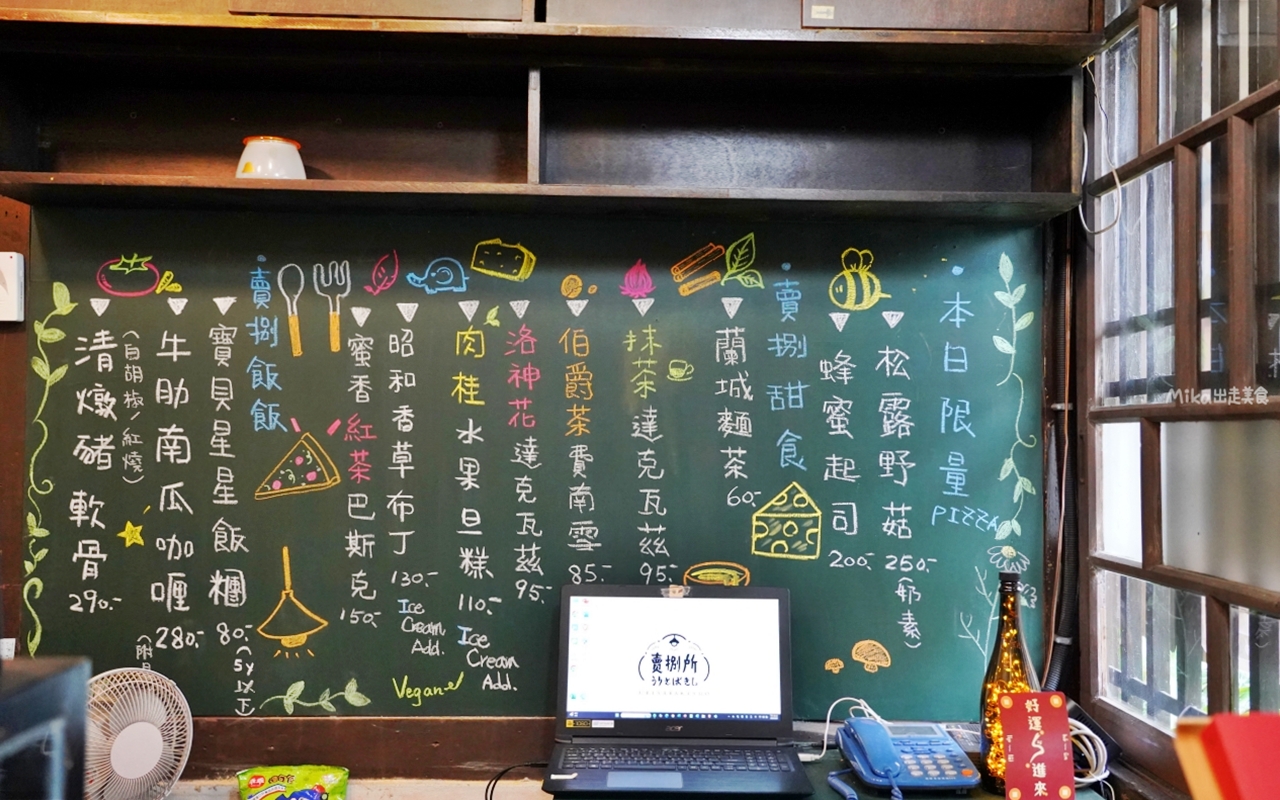 本日限量
PIZZA
松露野菇 250.-
(奶素)
蜂蜜起司 200.-
賣捌甜食
蘭城麵茶 60.-
抹茶達克瓦茲 95.-
伯爵茶費南雪 85.-
洛神花達克瓦茲 95.-
肉桂水果旦糕 110.-
Ice
Cream
Add.
Vegan
昭和香草布丁 130.-
Ice
Cream
Add.
蜜香紅茶巴斯克 150.-
賣捌飯飯
寶貝星星飯糰 80.-
(5y以下)
牛肋南瓜咖喱 280.-
(白胡椒/紅燒)
清燉豬軟骨 290.-
賣捌所
うりさばきしょ
acer
好運
進來
Mika出走美食